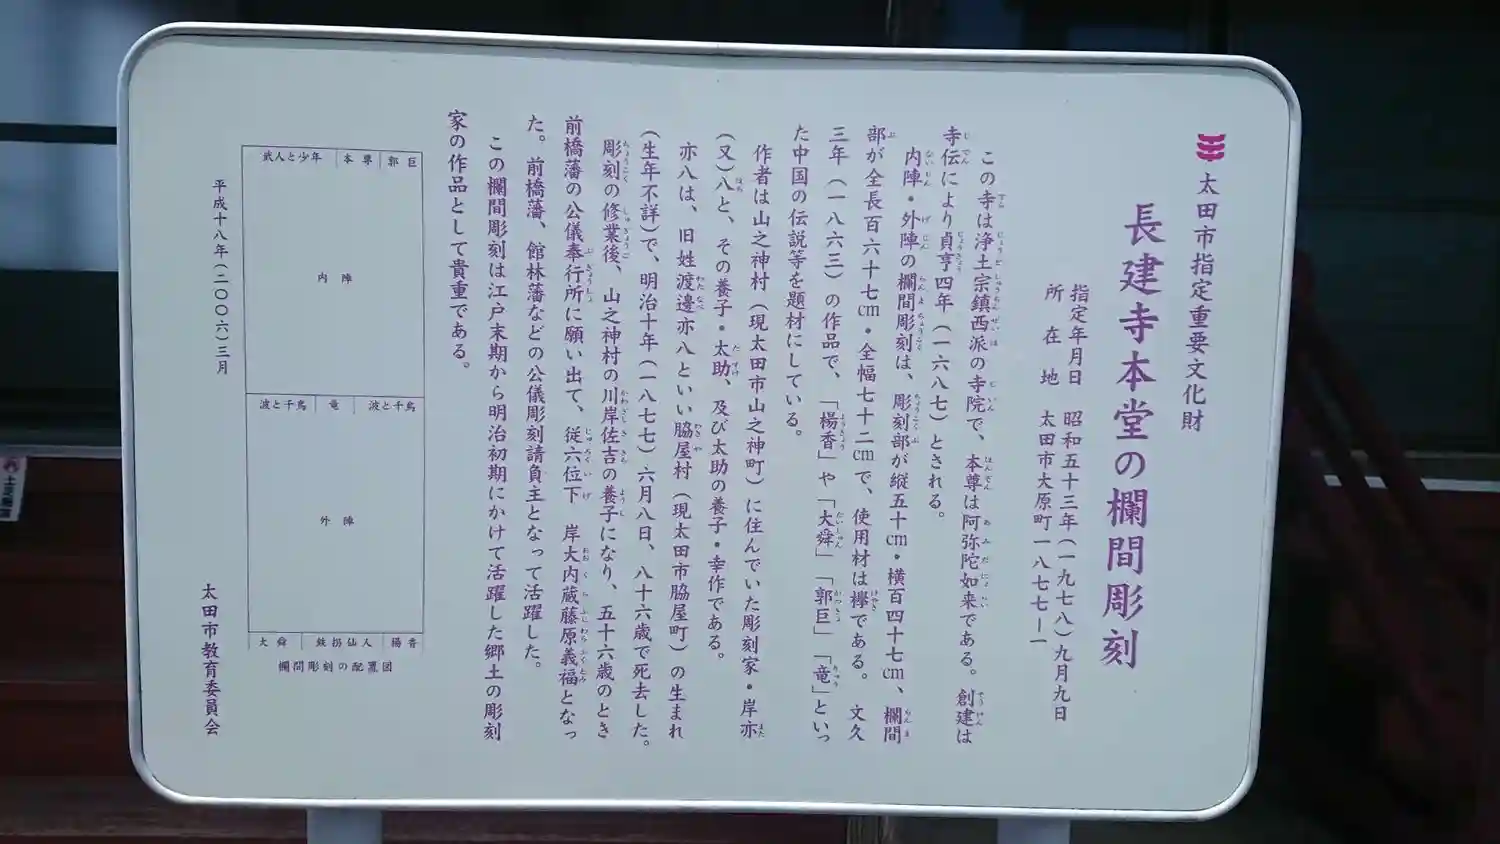 太田市指定重要文化財
長建寺本堂の欄間彫刻
指定年月日 昭和五十三年(一九七八)九月九日
所在地 太田市大原町一八七七―一
この寺は浄土宗鎮西派の寺院で、本尊は阿弥陀如来である。創建は
寺伝により貞享四年(一六八七)とされる。
内陣・外陣の欄間彫刻は、彫刻部が縦五十cm・横百四十七cm、欄間
部が全長百六十七cm・全幅七十二cmで、使用材は欅である。文久
三年(一八六三)の作品で、「楊香」や「大舜」「郭巨」「竜」といっ
た中国の伝説等を題材にしている。
作者は山之神村(現太田市山之神町)に住んでいた彫刻家・岸亦
(又)八と、その養子・太助、及び太助の養子・幸作である。
亦八は、旧姓渡邊亦八といい脇屋村(現太田市脇屋町)の生まれ
(生年不詳)で、明治十年(一八七七)六月八日、八十六歳で死去した。
彫刻の修業後、山之神村の川岸佐吉の養子になり、五十六歳のとき
前橋藩の公儀奉行所に願い出て、従六位下 岸大内蔵藤原義福となっ
た。前橋藩、館林藩などの公儀彫刻請負主となって活躍した。
この欄間彫刻は江戸末期から明治初期にかけて活躍した郷土の彫刻
家の作品として貴重である。
武人と少年 本尊 郭巨
内陣
波と千鳥 竜 波と千鳥
外陣
大舜 鉄拐仙人 楊香
欄間彫刻の配置図
平成十八年(二〇〇六)三月
太田市教育委員会